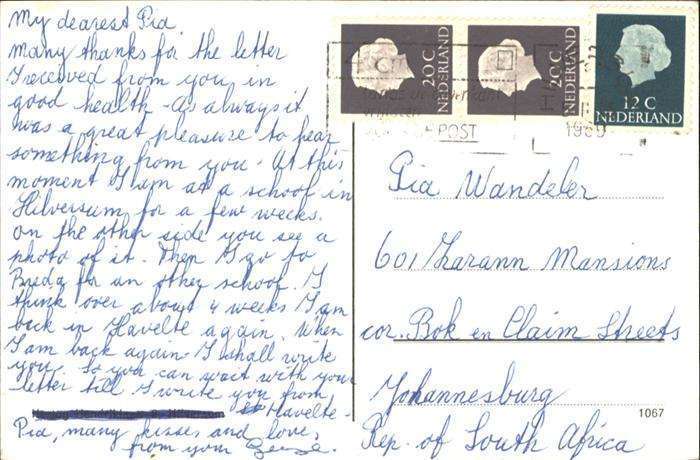 My dearest Pia
many thanks for the letter
I received from you in
good health - As always it
was a great pleasure to hear
something from you - At this
moment I am at a school in
Hilversum for a few weeks.
on the other side you see a
photo of it. Then I go to
Breda for an other school. I
think over about 4 weeks I am
back in Havelte again. When
I am back again I shall write
you. So you can wait with your
letter till I write you from
Havelte -
Pia, many kisses and love,
from your
20 C
NEDERLAND
20 C
NEDERLAND
12 C
NEDERLAND
POST
1969
Pia Wandeler
601 Zarann Mansions
cor. Bok en Claim Streets
Johannesburg
Rep. of South Africa
1067